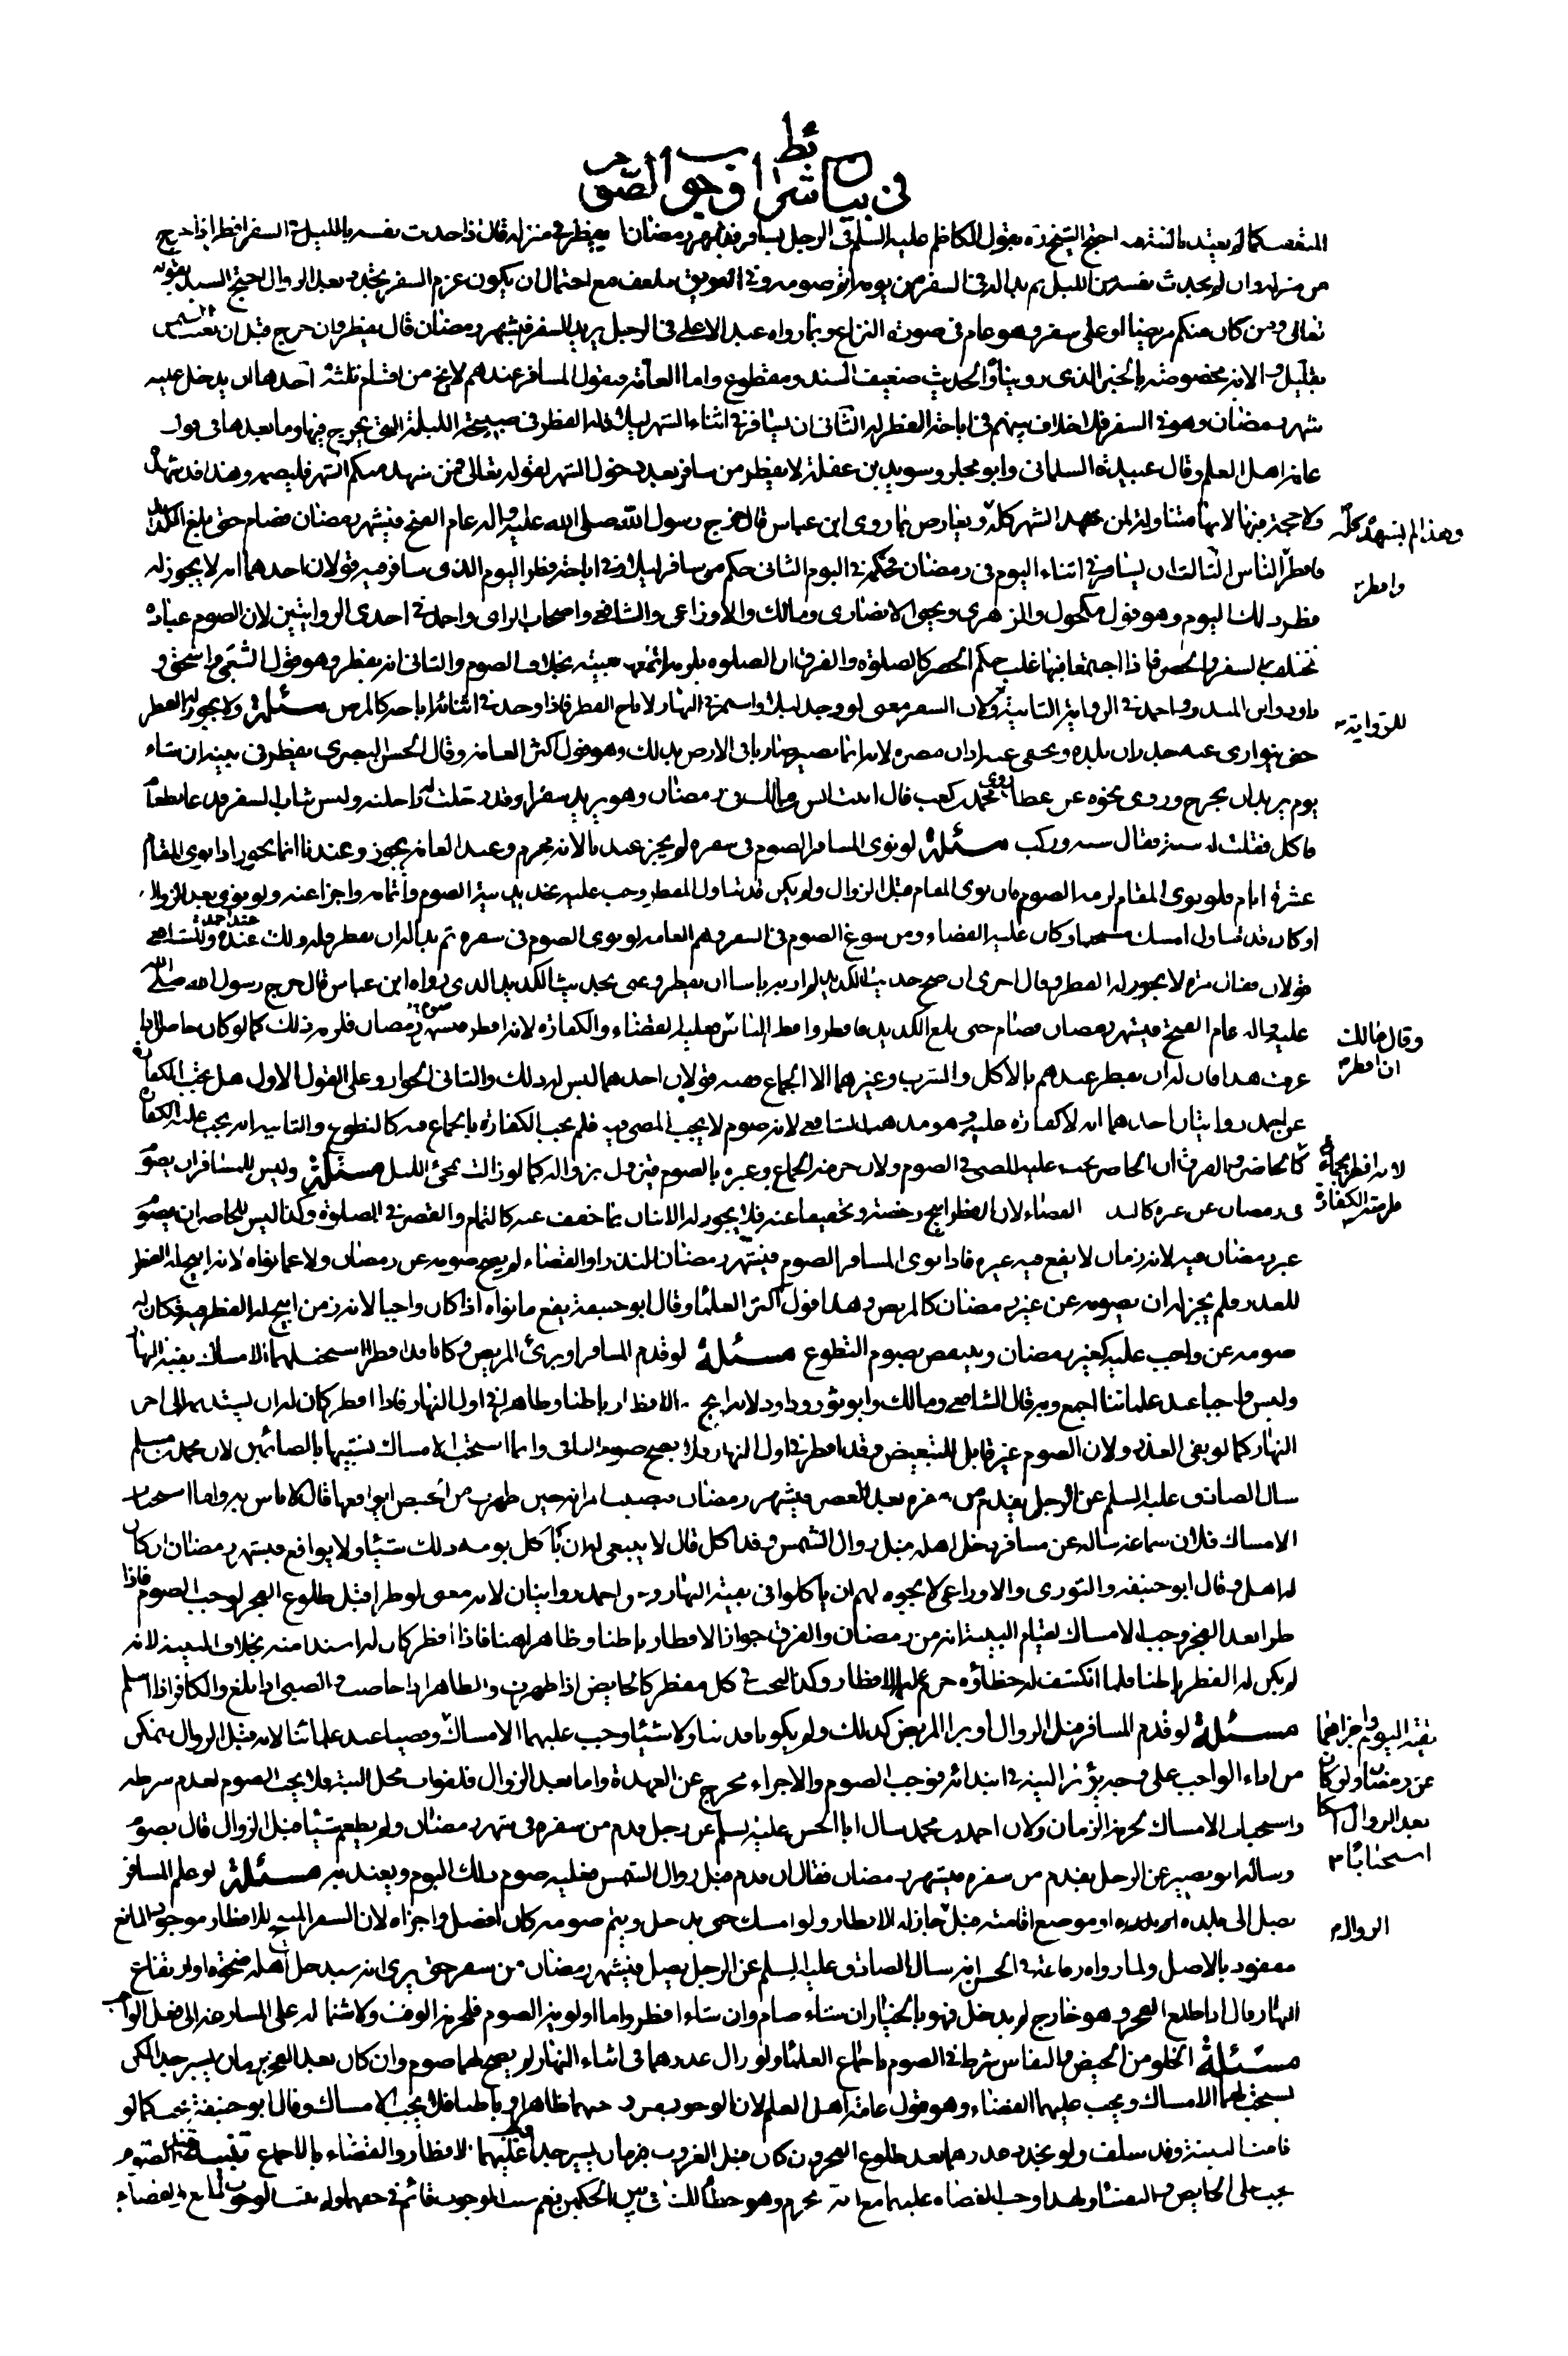 في بيان شرائط وجوب الصوم
احتج الشيخ ره بقول الكاظم عليه السلم في الرجل يسافر في شهر رمضان ايفطر في منزله قال اذا حدث نفسه بالليل في السفر افطر اذا خرج
من منزله وان لم يحدث نفسه من الليل ثم بدا له في السفر من يومه اتم صومه وفي الطريق ضعف مع احتمال ان يكون عزم السفر تجدد بعد الزوال احتج السيد بقوله
تعالى ومن كان منكم مريضا او على سفر وهو عام في صورة النزاع وبما رواه عبد الاعلى في الرجل يريد السفر في شهر رمضان قال يفطر وان خرج قبل ان تغيب الشمس
بقليل والاية مخصوصة بالخبر الذي رويناه والحديث ضعيف السند ومقطوع واما العامة فيقول المسافر عندهم لا يخ من اقسام ثلثة احدها ان يدخل عليه
شهر رمضان وهو في السفر فلا خلاف بينهم في اباحة الفطر له الثاني ان يسافر في اثناء الشهر ليلا فله الفطر في صبيحة الليلة التي يخرج فيها وما بعدها في قول
عامة اهل العلم وقال عبيدة السلماني وابو مجلز وسويد بن غفلة لا يفطر من سافر بعد دخول الشهر لقوله تعالى فمن شهد منكم الشهر فليصمه وهذا قد شهده
وهذا لم يشهد كله
ولا حجة فيها لانها متناولة لمن شهد الشهر كله ويعارض بما روى ابن عباس قال خرج رسول الله صلى الله عليه واله عام الفتح في شهر رمضان فصام حتى بلغ الكديد
وافطر
فافطر الناس الثالث ان يسافر في اثناء اليوم في رمضان فحكمه في اليوم الثاني حكم من سافر ليلا وفي اباحة فطر اليوم الذي سافر فيه قولان احدهما انه لا يجوز له
فطر ذلك اليوم وهو قول مكحول والزهري ويحيى الانصاري ومالك والاوزاعي والشافعي واصحاب الراي واحمد في احدى الروايتين لان الصوم عبادة
تختلف بالسفر والحضر فاذا اجتمعا فيها غلب حكم الحضر كالصلوة والفرق ان الصلوة يلزم اتمامها بنيته بخلاف الصوم والثاني انه يفطر وهو قول الشعبي واسحق و
للرواية
داود وابن المنذر واحمد في الرواية الثانية ولان السفر معنى لو وجد ليلا واستمر في النهار لاباح الفطر فاذا وجد في اثنائه اباحه كالمرض مسئلة ولا يجوز له الفطر
حتى يتوارى عنه جدران بلده ويخفى عنه اذان مصره لانه انما يصير ضاربا في الارض بذلك وهو قول اكثر العامة وقال الحسن البصري يفطر في بيته ان شاء
يوم يريد ان يخرج وروي نحوه عن عطا روى محمد بن كعب قال اتيت انس بن مالك في رمضان وهو يريد سفرا وقد رحلت له راحلته ولبس ثياب السفر فدعا بطعام
فاكل فقلت له سنة فقال سنة وركب مسئلة لو نوى المسافر الصوم في سفره لم يجز عندنا لانه محرم وعند العامة يجوز وعندنا انما يجوز اذا نوى المقام
عشرة ايام فلو نوى المقام لزمه الصوم فان نوى المقام قبل الزوال ولم يكن قد تناول المفطر وجب عليه تجديد نية الصوم واتمامه واجزا عنه ولو نوى بعد الزوال
او كان قد تناول امسك مستحبا وكان عليه القضاء ومن سوغ الصوم في السفر وهم العامة لو نوى الصوم في سفره ثم بدا له ان يفطر فله ذلك عند احمد وللشافعي
قولان فقال مرة لا يجوز له الفطر وقال اخرى ان صح حديث الكديد لم ار به باسا ان يفطر وعنى بحديث الكديد الذي رواه ابن عباس قال خرج رسول الله صلى الله
وقال مالك ان افطر
عليه واله عام الفتح في شهر رمضان فصام حتى بلغ الكديد فافطر وافطر الناس فعليه القضاء والكفارة لانه افطر في صوم شهر رمضان فلزمه ذلك كما لو كان حاضرا اذا
عرفت هذا فان له ان يفطر عندهم بالاكل والشرب وغيرهما الا الجماع ففيه قولان احدهما ليس له ذلك والثاني الجواز وعلى القول الاول هل تجب الكفارة
عن احمد روايتان احداهما انه لا كفارة عليه وهو مذهب الشافعي لانه صوم لا يجب المضي فيه فلم يجب الكفارة بالجماع فيه كالتطوع والثانية انه يجب عليه الكفارة
لانه افطر بجماع فلزمته الكفارة
كالحاضر والفرق ان الحاضر يجب عليه المضي في الصوم ولان حرمة الجماع وغيره بالصوم فتزول بزواله كما لو زالت بمجئ الليل مسئلة وليس للمسافر ان يصوم
في رمضان عن غيره كالنذر والقضاء لان الفطر ابيح رخصة وتخفيفا عنه فلا يجوز له الاتيان بما خفف عنه كالتمام والقصر في الصلوة وكذا ليس للحاضر ان يصوم
غير رمضان فيه لانه زمان لا يقع فيه غيره فاذا نوى المسافر الصوم في شهر رمضان للنذر او القضاء لم يصح صومه عن رمضان ولا عما نواه لانه ابيح له الفطر
للعذر فلم يجز له ان يصومه عن غير رمضان كالمريض وهذا قول اكثر العلماء وقال ابو حنيفة يقع ما نواه اذا كان واجبا لانه زمن ابيح له الفطر فيه فكان له
صومه عن واجب عليه كغير رمضان وينتقض بصوم التطوع مسئلة لو قدم المسافر او برئ المريض وكانا قد افطرا استحب لهما الامساك بقية النهار
وليس واجبا عند علمائنا اجمع وبه قال الشافعي ومالك وابو ثور وداود لانه ابيح له الافطار باطنا وظاهرا في اول النهار فاذا افطر كان له ان يستديمه الى اخر
النهار كما لو بقي العذر ولان الصوم غير قابل للتبعيض وقد افطر في اول النهار فلا يصح صوم الباقي وانما استحب الامساك تشبيها بالصائمين لان محمد بن مسلم
سال الصادق عليه السلم عن الرجل يقدم من سفره بعد العصر في شهر رمضان فيصيب امراته حين طهرت من الحيض ايواقعها قال لا باس به واما استحباب
الامساك فلان سماعة ساله عن مسافر دخل اهله قبل زوال الشمس وقد اكل قال لا ينبغي له ان ياكل يومه ذلك شيئا ولا يواقع في شهر رمضان ان كان
له اهل وقال ابو حنيفة والثوري والاوزاعي لا يجوز لهم ان ياكلوا في بقية النهار وعن احمد روايتان لانه معنى لو طرا قبل طلوع الفجر لوجب الصوم فاذا
طرا بعد الفجر وجب الامساك لقيام البينة انه من رمضان والفرق جواز الافطار باطنا وظاهرا هنا فاذا افطر كان له استدامته بخلاف البينة لانه
لم يكن له الفطر باطنا فلما انكشف له خطاؤه حرم عليه الافطار وكذا البحث في كل مفطر كالحايض اذا طهرت والطاهر اذا حاضت والصبي اذا بلغ والكافر اذا اسلم
مسئلة لو قدم المسافر قبل الزوال او برا المريض كذلك ولم يكونا قد تناولا شيئا وجب عليهما الامساك وصيا عند علمائنا لانه قبل الزوال يتمكن
بقية اليوم واجزاهما عن رمضان ولو كان بعد الزوال امسكا استحبابا
من اداء الواجب على وجه يؤثر النية في ابتدائه فوجب الصوم والاجزاء مخرج عن العهدة واما بعد الزوال فلفوات محل النية فلا يجب الصوم لعدم شرطه
واستحباب الامساك لحرمة الزمان ولان احمد بن محمد سال ابا الحسن عليه السلم عن رجل قدم من سفره في شهر رمضان ولم يطعم شيئا قبل الزوال قال يصوم
وساله ابو بصير عن الرجل يقدم من سفره في شهر رمضان فقال ان قدم قبل زوال الشمس فعليه صوم ذلك اليوم ويعتد به مسئلة لو علم المسافر
الزوال
يصل الى بلده او موضع اقامته قبل جاز له الافطار ولو امسك حتى يدخل ويتم صومه كان افضل واجزاه لان السفر المبيح للافطار موجود والمانع
مفقود بالاصل ولما رواه رفاعة في الحسن انه سال الصادق عليه السلم عن الرجل يصل في شهر رمضان من سفر حتى يرى انه سيدخل اهله ضحوة او ارتفاع
النهار قال اذا طلع الفجر وهو خارج لم يدخل فهو بالخيار ان شاء صام وان شاء افطر واما اولوية الصوم فلحرمة الوقت ولاشتماله على المسارعة الى فعل الواجب
مسئلة الخلو من الحيض والنفاس شرط في الصوم باجماع العلماء ولو زال عذرهما في اثناء النهار لم يصح لهما صوم وان كان بعد الفجر بزمان يسير جدا لكن
يستحب لهما الامساك ويجب عليهما القضاء وهو قول عامة اهل العلم لان الوجوب حقهما ظاهرا وباطنا فلا يجب الامساك وقال ابو حنيفة يجب كما لو
قامت البينة وقد سلف ولو تجدد عذرهما بعد طلوع الفجر ولو كان قبل الغروب بزمان يسير جدا وجب عليهما الافطار والقضاء بالاجماع تنبيه قيل الصوم
يجب على الحايض والنفساء ولهذا وجب القضاء عليهما مع انه محرم وهو خطا للتنافي بين الحكمين نعم سبب الوجوب قائم في حقهما